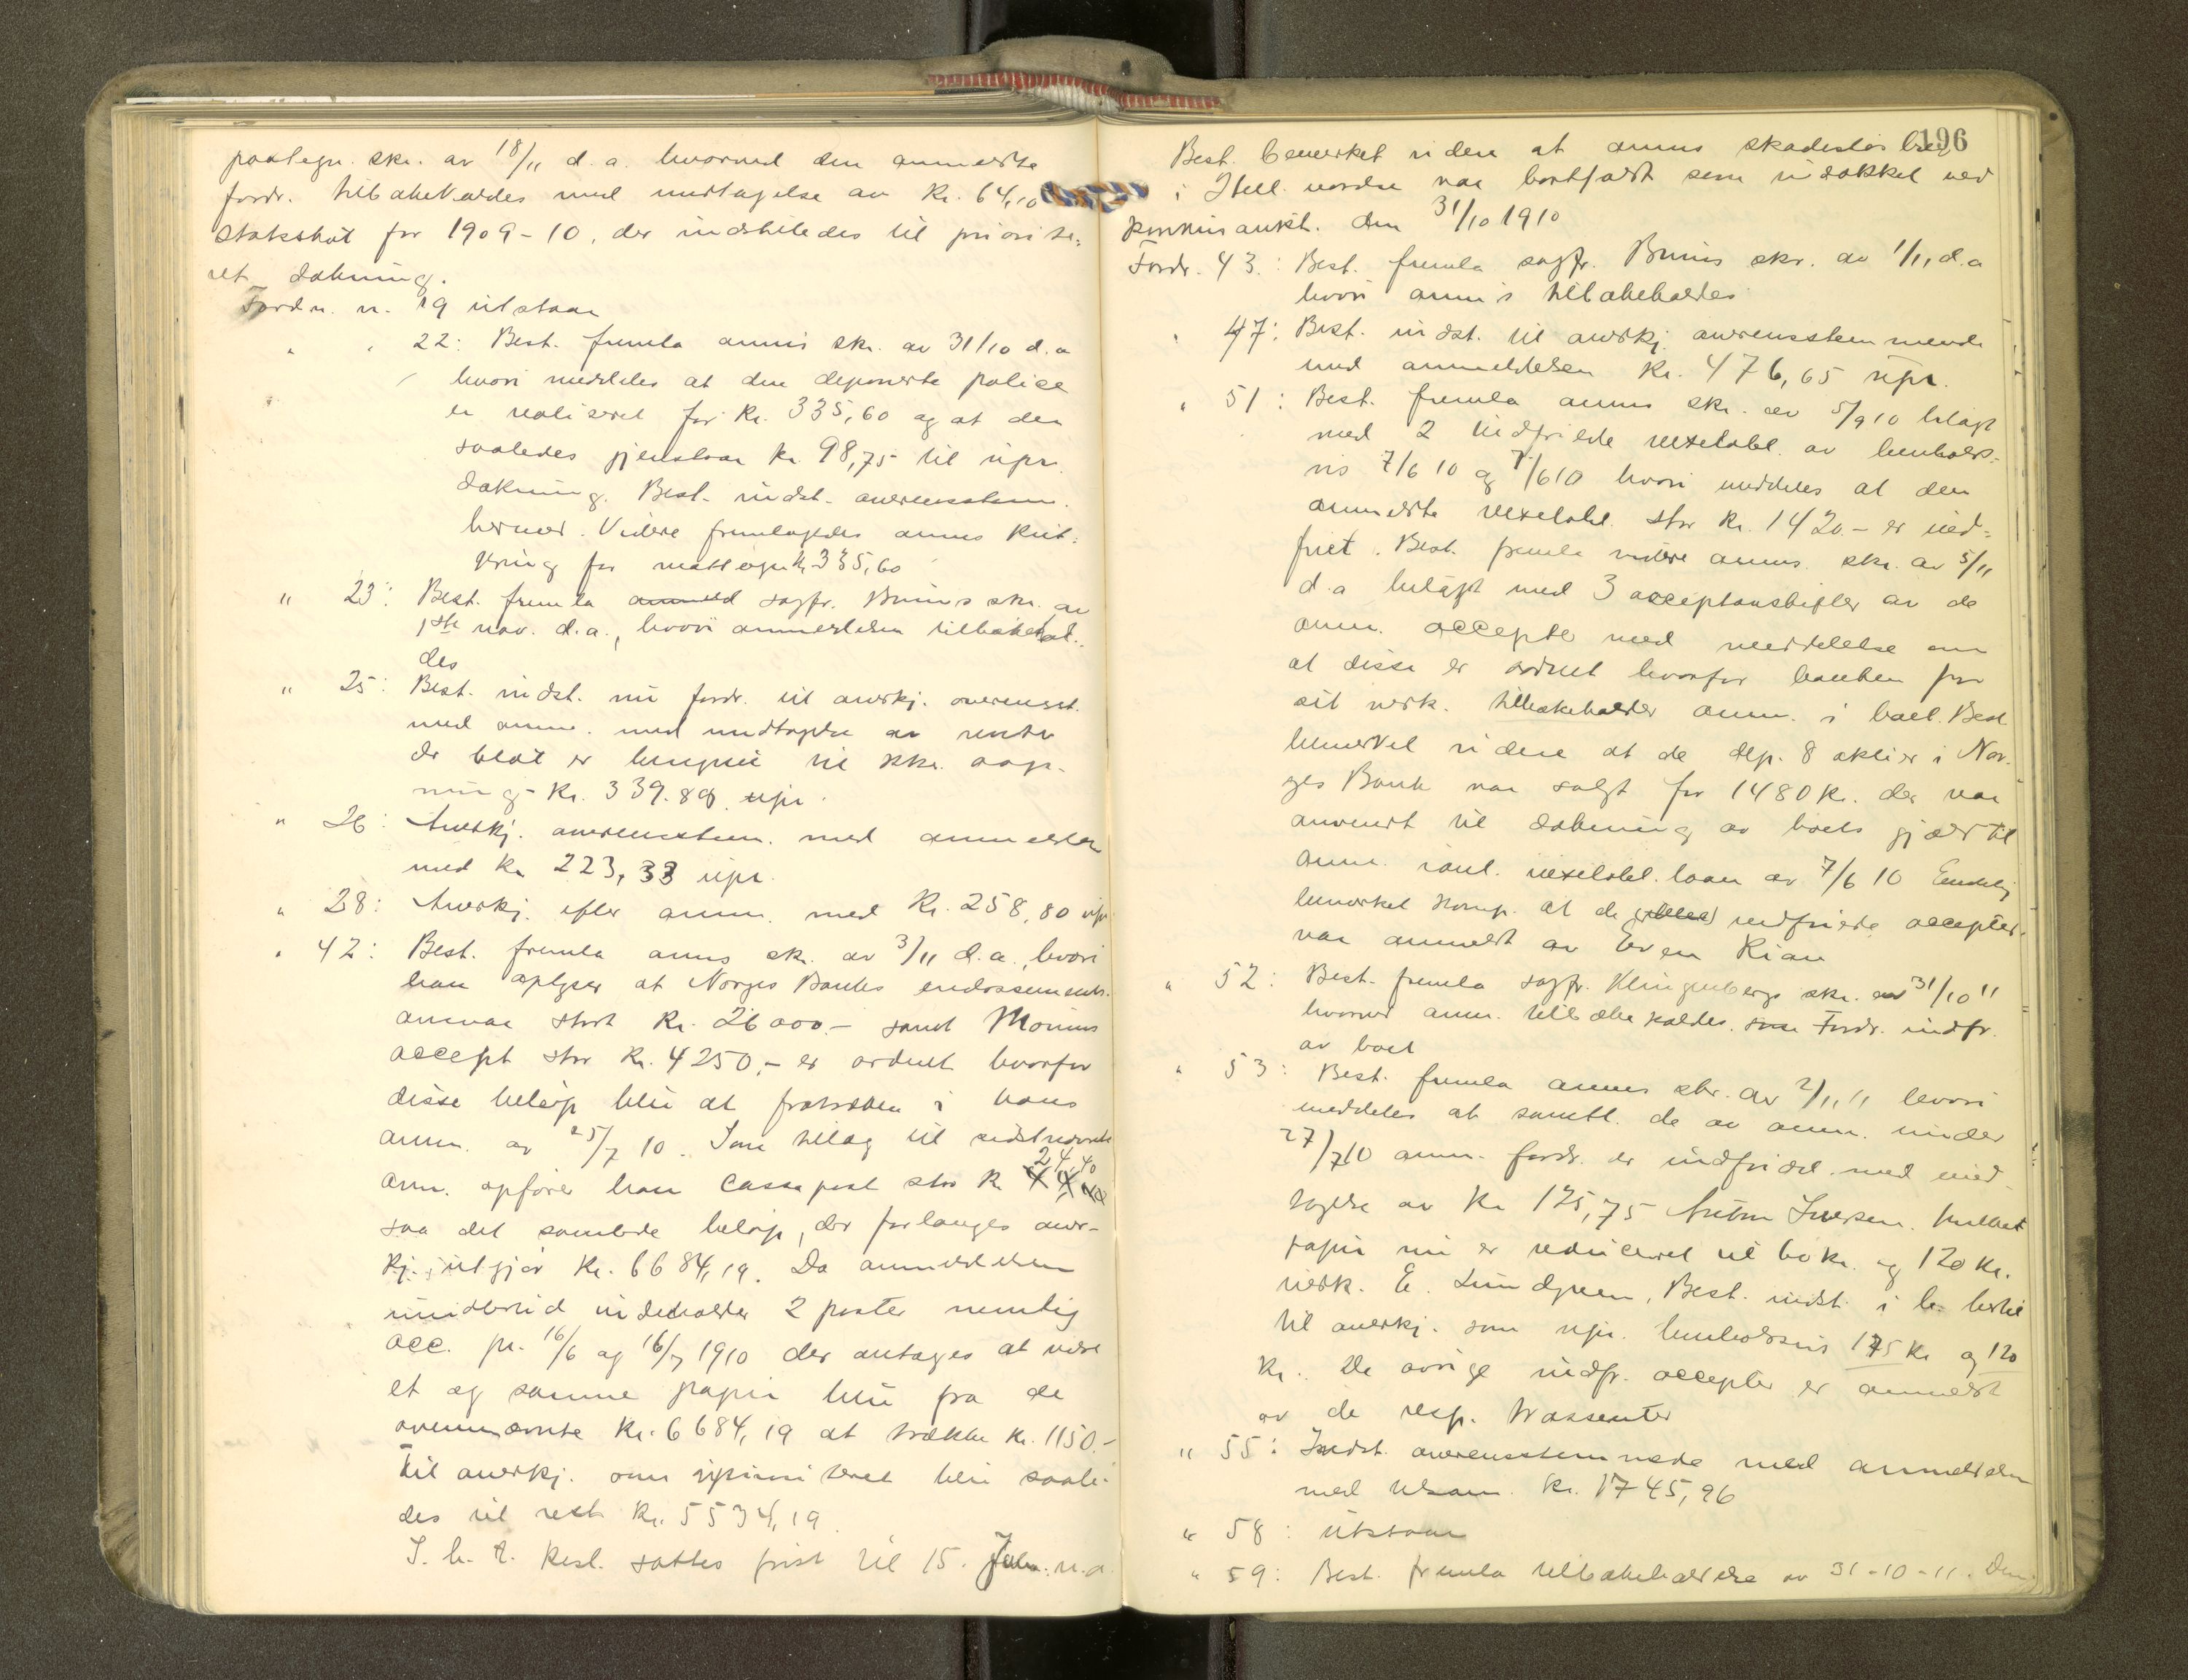 paategn. skr. av 18/11 d.a. hvorved den anmeldte
fordr. tilbakekaldes med undtagelse av Kr. 64,10
statsskat for 1909-10, der indstilledes til priorite-
ret dækning.
Fordr. n. 19 utstaar
" " 22: Best. fremla anm's skr. av 31/10 d.a
hvori meddeles at den deponerte police
er realiseret for Kr. 335,60 og at der
saaledes gjenstaar Kr. 98,75 til upr.
dækning. Best. indst. overensstem.
herved. Videre fremlagdes anms kvit-
tering for Kr. 335,60
" 23: Best. fremla sagfr. Bruns skr. av
1ste nov. d.a., hvori anmeldelsen tilbakekal-
des
" 25: Best. indst. nu fordr. til anerkj. overensst.
med anm. med undtagelse av renter
der blot er beregnet til skr. aap-
ning - Kr. 339.89 upr.
" 26: Anerkj. overensstem. med anmeldelsen
med Kr 223,33 upr.
" 28: Anerkj. efter anm. med Kr. 258,80 upr
" 42: Best. fremla anms skr. av 3/11 d.a., hvori
han oplyser at Norges Banks endossements-
ansvar stort Kr. 26000.- samt
accept stor Kr. 4250,- er ordnet hvorfor
disse beløp blir at fratrække i hans
anm. av 25/7 10. Som tillæg til sidstnævnte
anm. opfører han Cassapost stor Kr 24,40
saa det samlede beløp, der forlanges aner-
kj. utgjør Kr. 6684,19. Da anmeldelsen
imidlertid indeholder 2 poster nemlig
acc. pr. 16/6 og 16/7 1910 der antages at være
et og samme papir blir fra de
ovennævnte Kr. 6684,19 at trække Kr. 1150.-
Til anerkj. som uprioriteret blir saale-
des til rest Kr. 5534,19.
I h. t. Resl. sattes frist til 15. n.a.
196
Best. bemerket videre at anms skadesløsbrev
i Hell nordre var bortfaldt som udækket ved
aukt. den 31/10 1910
Fordr. 43: Best. fremla sagfr. Bruns skr. av 1/11 d.a
hvori anm's tilbakekaldes
" 47: Best. indst. til anerkj. overensstemmende
med anmeldelsen Kr. 476,65 upr.
" 51: Best. fremla anms skr. av 5/9 10 bilagt
med 2 indfriede vexelobl. av henholds-
vis 7/6 10 og 7/6 10 hvori meddeles at den
anmeldte vexelobl. stor Kr. 1420.- er ind-
friet. Best. fremla videre anms. skr. av 5/11
d.a bilagt med 3 av de
anm. accepter med meddelelse om
at disse er ordnet hvorfor banken for
sit verk. tilbakekalder anm. i boet. Best.
bemerket videre at de dep. 8 aktier i Nor-
ges Bank var solgt for 1480 Kr. der var
anvendt til dækning av boets gjæld til
anm. ianl. vexelobl. laan av 7/6 10 Endelig
bemerket komp. at de indfriede accepter
var anmeldt av Even Rian
" 52: Best. fremla sagfr. Klingenbergs skr. av 31/10 11
hvorved anm. tilbakekaldes. Fordr. indfr.
av boet
" 53: Best. fremla anms skr. av 2/11 11 hvori
meddeles at samtl. de av anm. under
27/7 10 anm. fordr. er indfridd med und-
tagelse av Kr 125,75 Anton Iversen. hvilket
papir nu er reduceret til 60 Kr. og 120 Kr.
E. Lundgreen, Best. indst. i h. hertil
til anerkj. som upr. henholdsvis 175 Kr og 120
Kr. De øvrige indfr. accepter er anmeldt
av de resp. trassenter
" 55: Indst. overensstemmende med anmeldelsen
med tilsam. Kr. 1745,96
" 58: utstaar
" 59: Best. fremla tilbakekaldelse av 31-10-11. Den